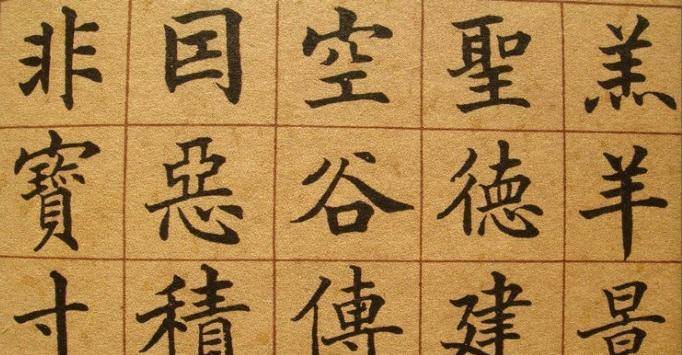 羔羊景
聖德建
空谷傳
囙惡積
非寶寸